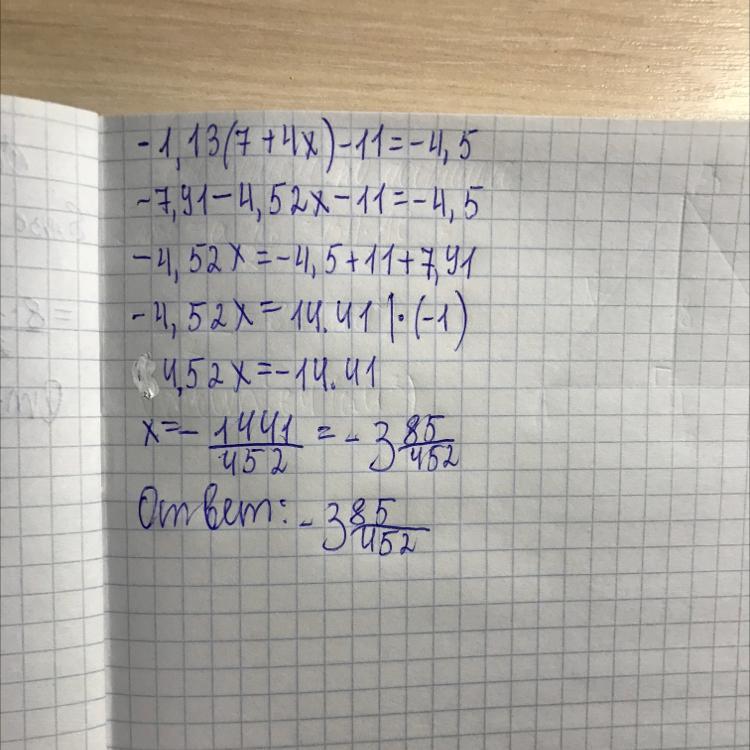 -1,13(7+4x)-11=-4,5
-7,91-4,52x-11=-4,5
-4,52x=-4,5+11+7,91
-4,52x=14.41 |·(-1)
4,52x=-14.41
x=-1441/452=-3 85/452
Ответ: -3 85/452